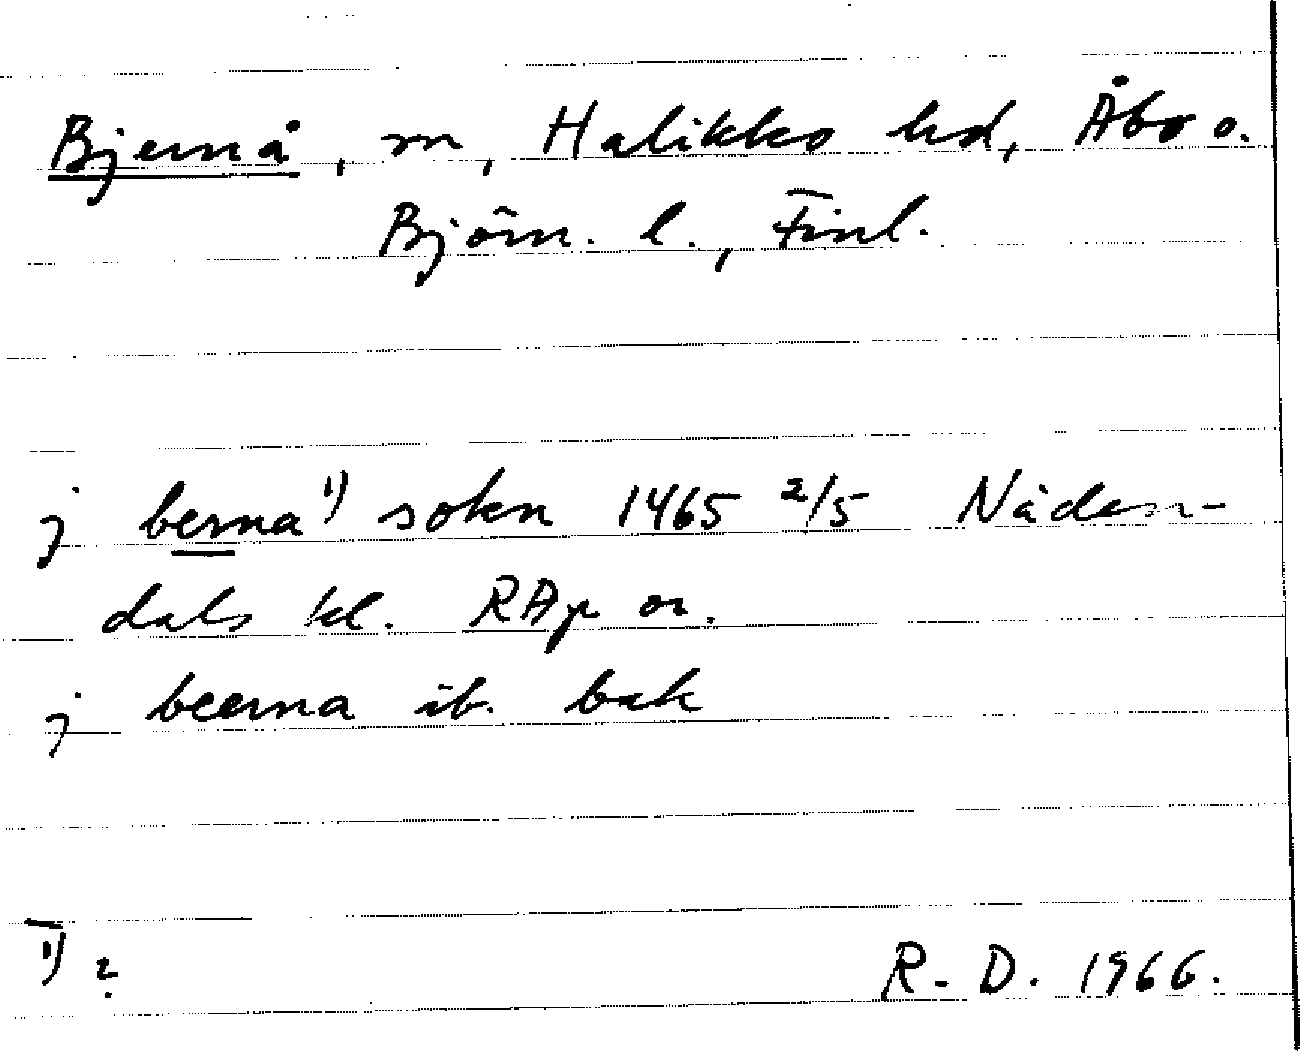 Bjernå, sn, Halikko hd, Åbo o.
Björn. l., Finl.
j berna 1) sokn 1465 2/5 Nåden-
dals kl. RAp or.
j beerna ib. bak
1) ?
R. D. 1966.